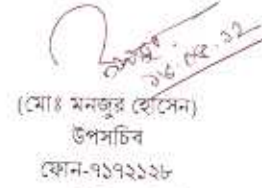 (মোঃ মনজুর হোসেন)
উপসচিব
ফোন-৭১৭২১২৮